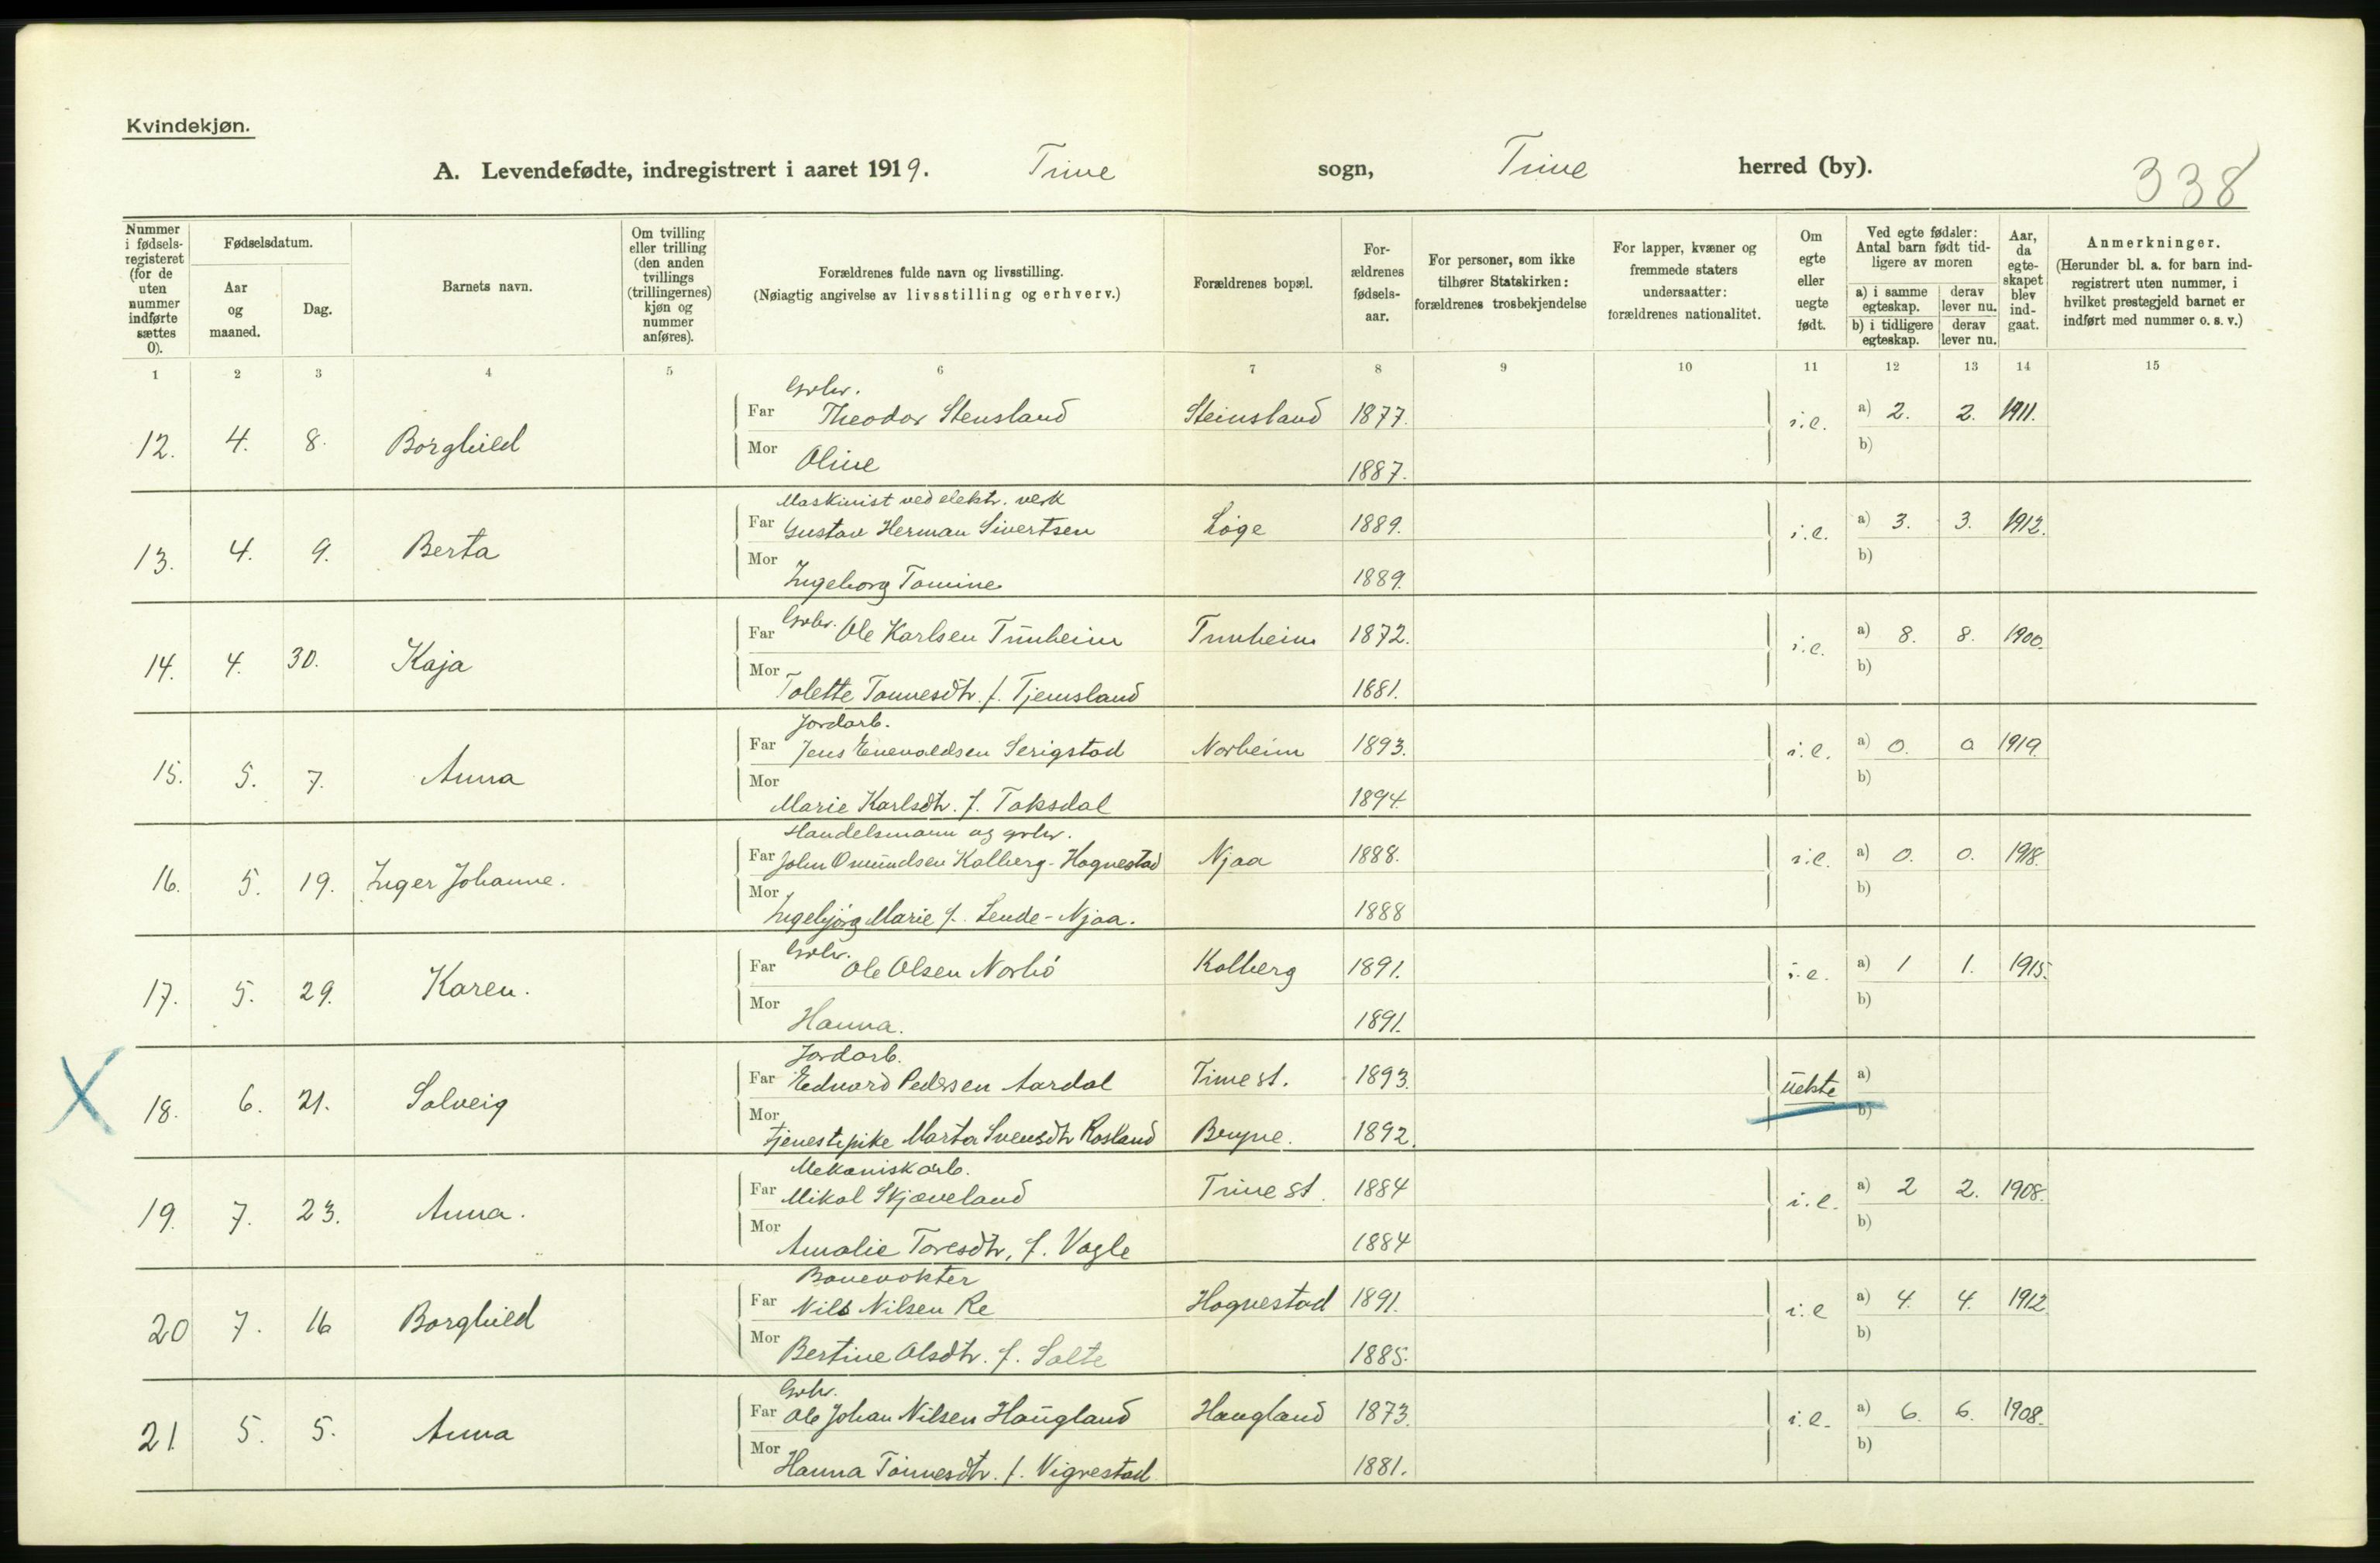 Kvindekjøn.
A. Levendefødte, indregistrert i aaret 1919. Time sogn, Time herred (by). 338
Nummer i fødsels-registeret (for de uten nummer indførte sættes 0).
Fødselsdatum.
Aar og maaned.
Dag.
Barnets navn.
Om tvilling eller trilling (den anden tvillings (trillingernes) kjøn og nummer anføres).
Forældrenes fulde navn og livsstilling.
(Nøiagtig angivelse av livsstilling og erhverv.)
Forældrenes bopæl.
For-ældrenes fødsels-aar.
For personer, som ikke tilhører Statskirken: forældrenes trosbekjendelse
For lapper, kvæner og fremmede staters undersaatter: forældrenes nationalitet.
Om egte eller uegte født.
Ved egte fødsler: Antal barn født tid-ligere av moren
a) i samme egteskap. derav lever nu.
b) i tidligere egteskap. derav lever nu.
Aar, da egte-skapet blev ind-gaat.
Anmerkninger.
(Herunder bl. a. for barn ind-registrert uten nummer, i hvilket prestegjeld barnet er indført med nummer o. s. v.)
1 2 3 4 5 6 7 8 9 10 11 12 13 14 15
Grbr.
12. 4. 8. Borghild Far Theodor Stensland Steinsland 1877. i.e. a) 2. 2. 1911.
Mor Oline 1887. b)
Maskinist ved elektr. verk
13. 4. 9. Berta Far Gustav Herman Sivertsen Løge 1889. i.e. a) 3. 3. 1912.
Mor Ingeborg Tomine 1889. b)
14. 4. 30. Kaja Far Grbr. Ole Karlsen Tunheim Tunheim 1872. i.e. a) 8. 8. 1900.
Mor Tolette Tønnesdtr. f. Tjemsland 1881. b)
Jordarb.
15. 5. 7. Anna Far Jens Enevaldsen Serigstad Norheim 1893. i.e. a) 0. 0 1919.
Mor Marie Karlsdtr. f. Taksdal 1894. b)
Handelsmann og grbr.
16. 5. 19. Inger Johanne. Far John Omundsen Kalberg-Hognestad Njaa 1888. i.e. a) 0. 0. 1918.
Mor Ingebjørg Marie f. Lende-Njaa. 1888 b)
Grbr.
17. 5. 29. Karen. Far Ole Olsen Norbø Kalberg 1891. i.e. a) 1 1. 1915.
Mor Hanna. 1891. b)
Jordarb.
X 18. 6. 21. Solveig Far Edvard Pedersen Aardal Time st. 1893. uekte a)
Mor Tjenestepike Marta Svensdtr Rosland Bryne. 1892. b)
Mekanisk arb.
19. 7. 23. Anna. Far Mikal Skjæveland Time st. 1884 i.e. a) 2 2. 1908.
Mor Amalie Toresdtr. f. Vagle 1884 b)
Banevokter
20 7. 16 Borghild Far Nils Nilsen Re Hognestad 1891. i.e a) 4. 4. 1912
Mor Bertine Olsdtr. f. Salte 1885. b)
Grbr.
21 5. 5. Anna Far Ole Johan Nilsen Haugland Haugland 1873. i.e. a) 6. 6. 1908.
Mor Hanna Tønnesdtr. f. Vigrestad 1881. b)